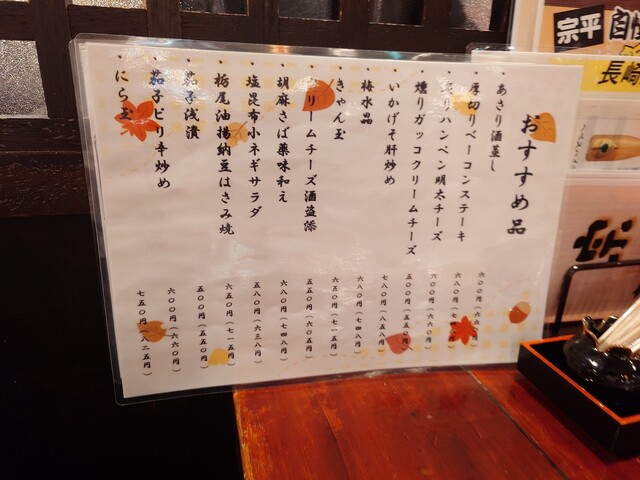 おすすめ品
・あさり酒蒸し 六〇〇円(六六〇円)
・厚切りベーコンステーキ 六八〇円(七四八円)
・炙りハンペン明太チーズ 六〇〇円(六六〇円)
・燻りガッコクリームチーズ 五〇〇円(五五〇円)
・いかげそ肝炒め 七八〇円(八五八円)
・梅水晶 六八〇円(七四八円)
・きゃん玉 六五〇円(七一五円)
・クリームチーズ酒盗添 五五〇円(六〇五円)
・胡麻さば薬味和え 六八〇円(七四八円)
・塩昆布小ネギサラダ 五八〇円(六三八円)
・栃尾油揚納豆はさみ焼 六五〇円(七一五円)
・茄子浅漬 五〇〇円(五五〇円)
・茄子ピリ辛炒め 六〇〇円(六六〇円)
・にら玉 七五〇円(八二五円)
宗平
長崎